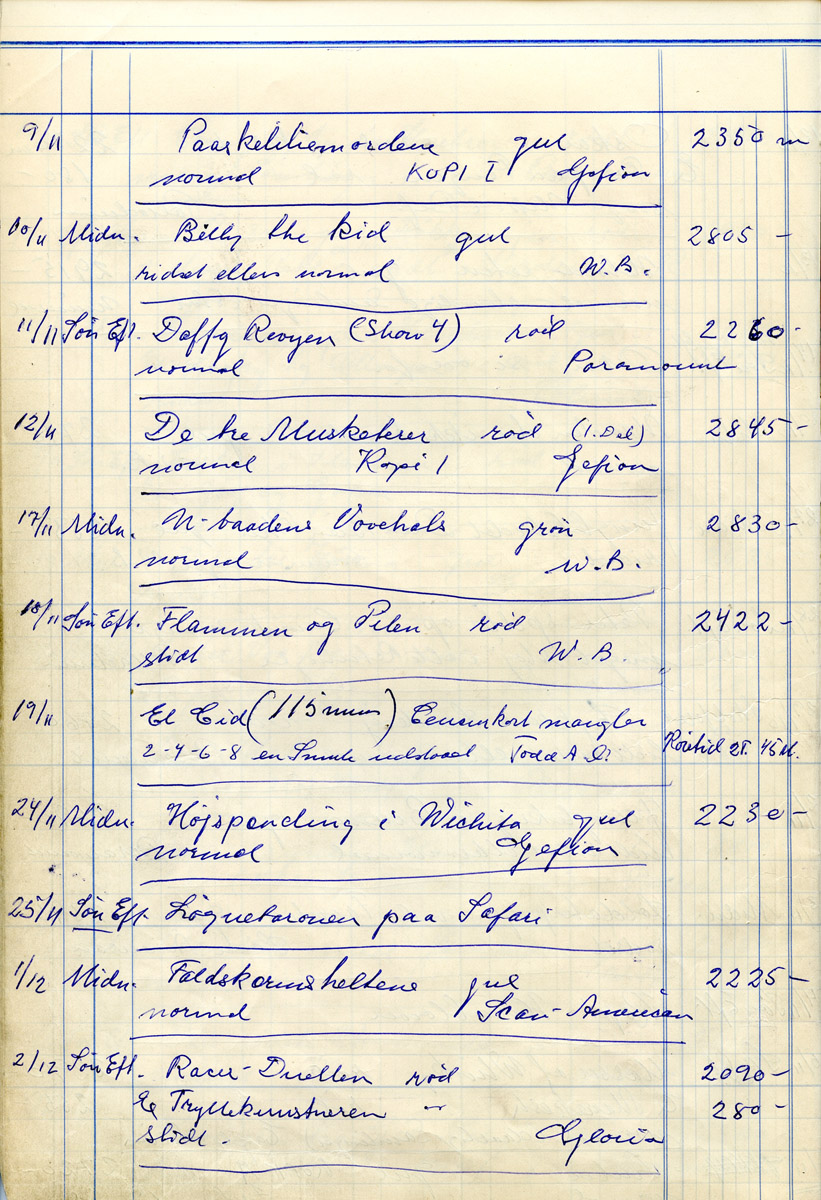 9/11 Paaskeliliemordene gul 2350 m
normal KOPI I Gefion
10/11 Midn. Billy the Kid gul 2805 -
ridset ellers normal W.B.
11/11 Søn Eft. Daffy Revyen (Show 4) rød 2260 -
normal Paramount
12/11 De tre Musketerer rød (1. Del) 2845 -
normal Kopi 1 Gefion
17/11 Midn. U-baadens Vovehals grøn 2830 -
normal W.B.
18/11 Søn Eft. Flammen og Pilen rød 2422 -
slidt W.B.
19/11 El Cid (115 min) Censurkort mangler
2-4-6-8 en Smule udstaaet Todd A.O. 2T. 45M.
24/11 Midn. Højspænding i Wichita gul 2230 -
normal Gefion
25/11 Søn Eft. Løgnebaronen paa Safari
1/12 Midn. Faldskærmsheltene gul 2225 -
normal Scan-American
2/12 Søn Eft. Racer-Duellen rød 2090 -
Tryllekunstneren - 280 -
slidt. Gloria